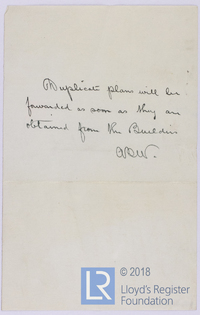 Duplicate plans will be
forwarded as soon as they are
obtained from the Builders
© 2018
LR
Lloyd's Register
Foundation